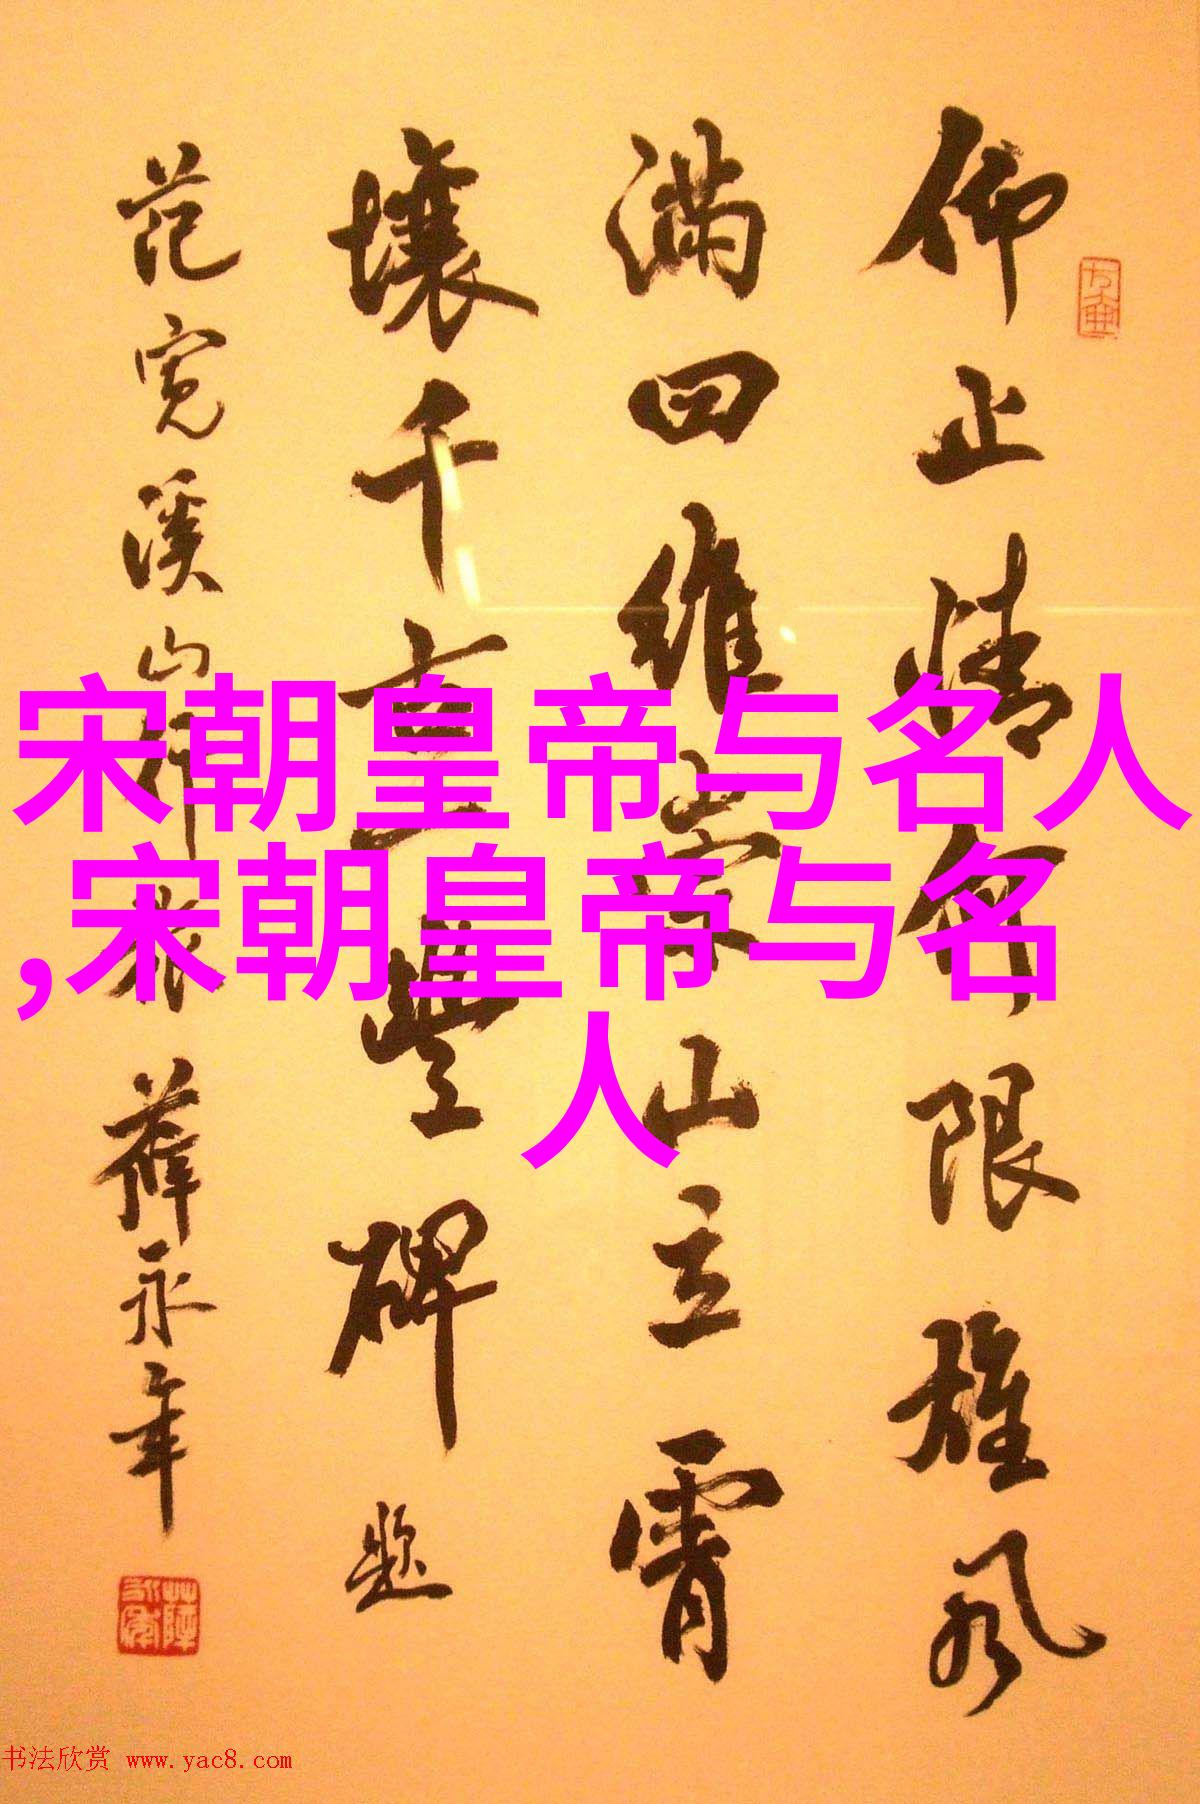 仰止情何限雄风
满四维崇山立霄
壤千古一豐碑 题
范宽溪山行旅 薛永年
宋朝皇帝与名人
,宋朝皇帝与名
人
书法欣赏 www.yac8.com